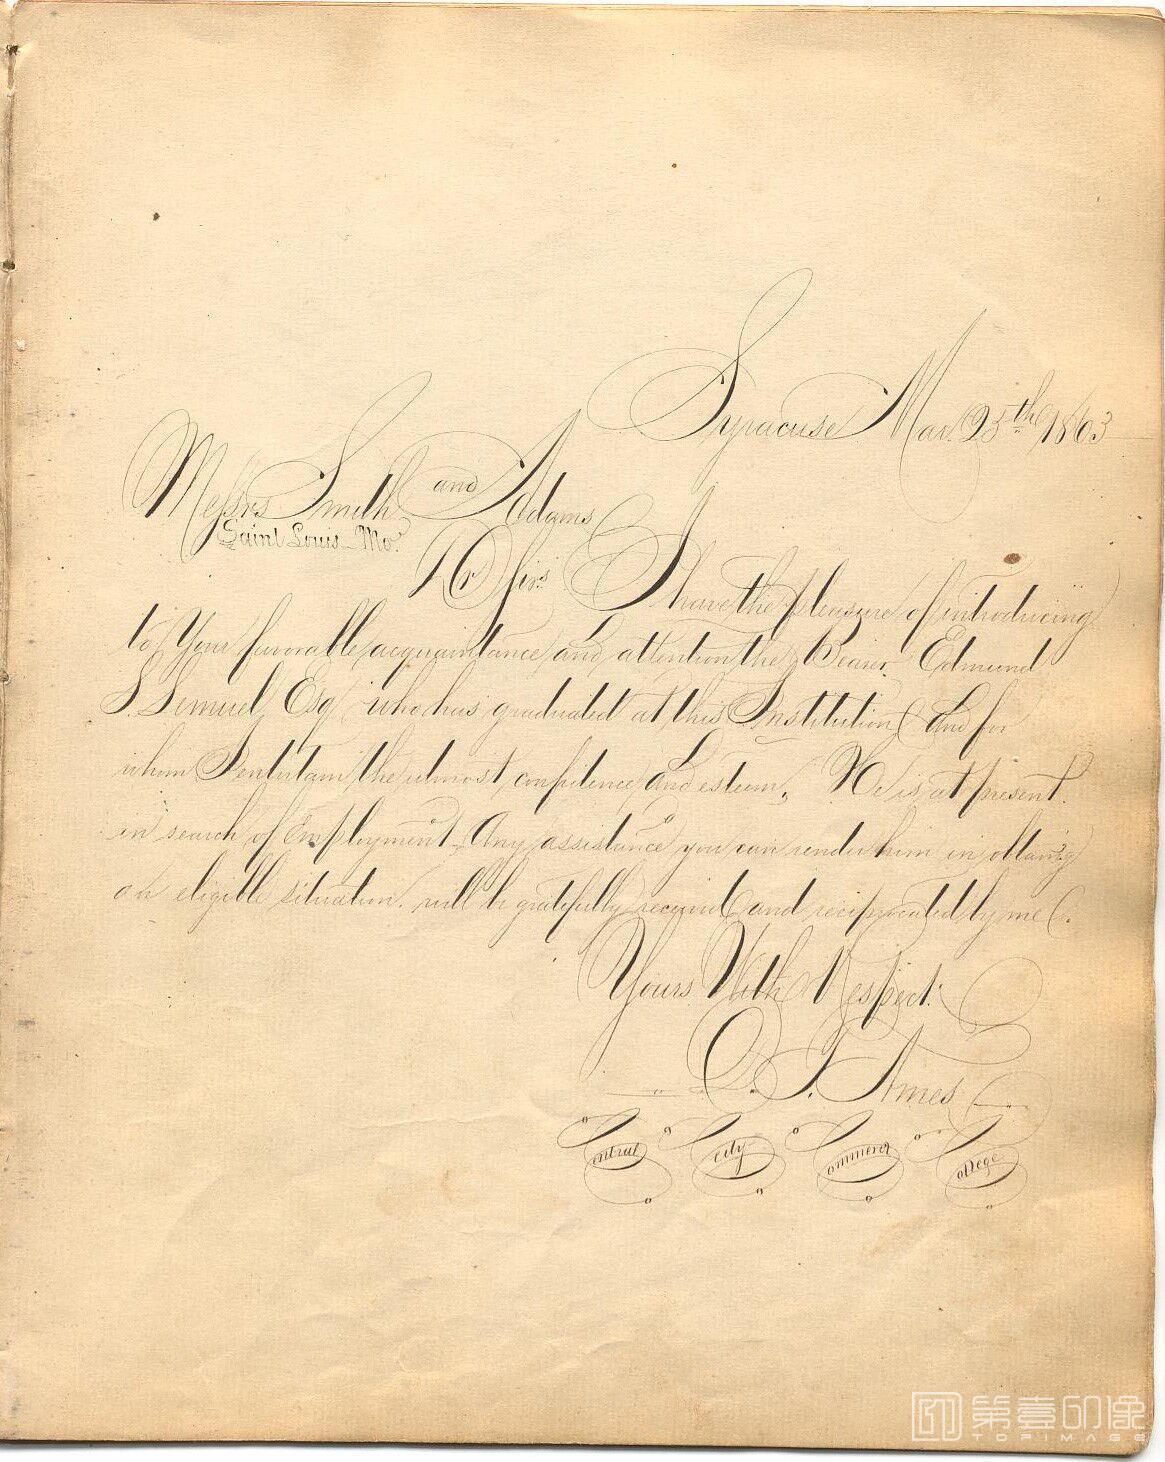 Syracuse Mar. 25th 1863
Messrs Smith and Adams
Saint Louis Mo.
Dr Sirs I have the pleasure of introducing
to Your favorable acquaintance and attention the Bearer Edmund
S. Semuel Esq who has graduated at this Institution and for
whom I entertain the utmost confidence and esteem, He is at present
in search of Employment. Any assistance you can render him in obtaing
an eligible situation. will be gratefully received and reciprocated by me.
Yours With Respect.
T. Ames
Central City Commercl College
第壹印像
TOPIMAGE